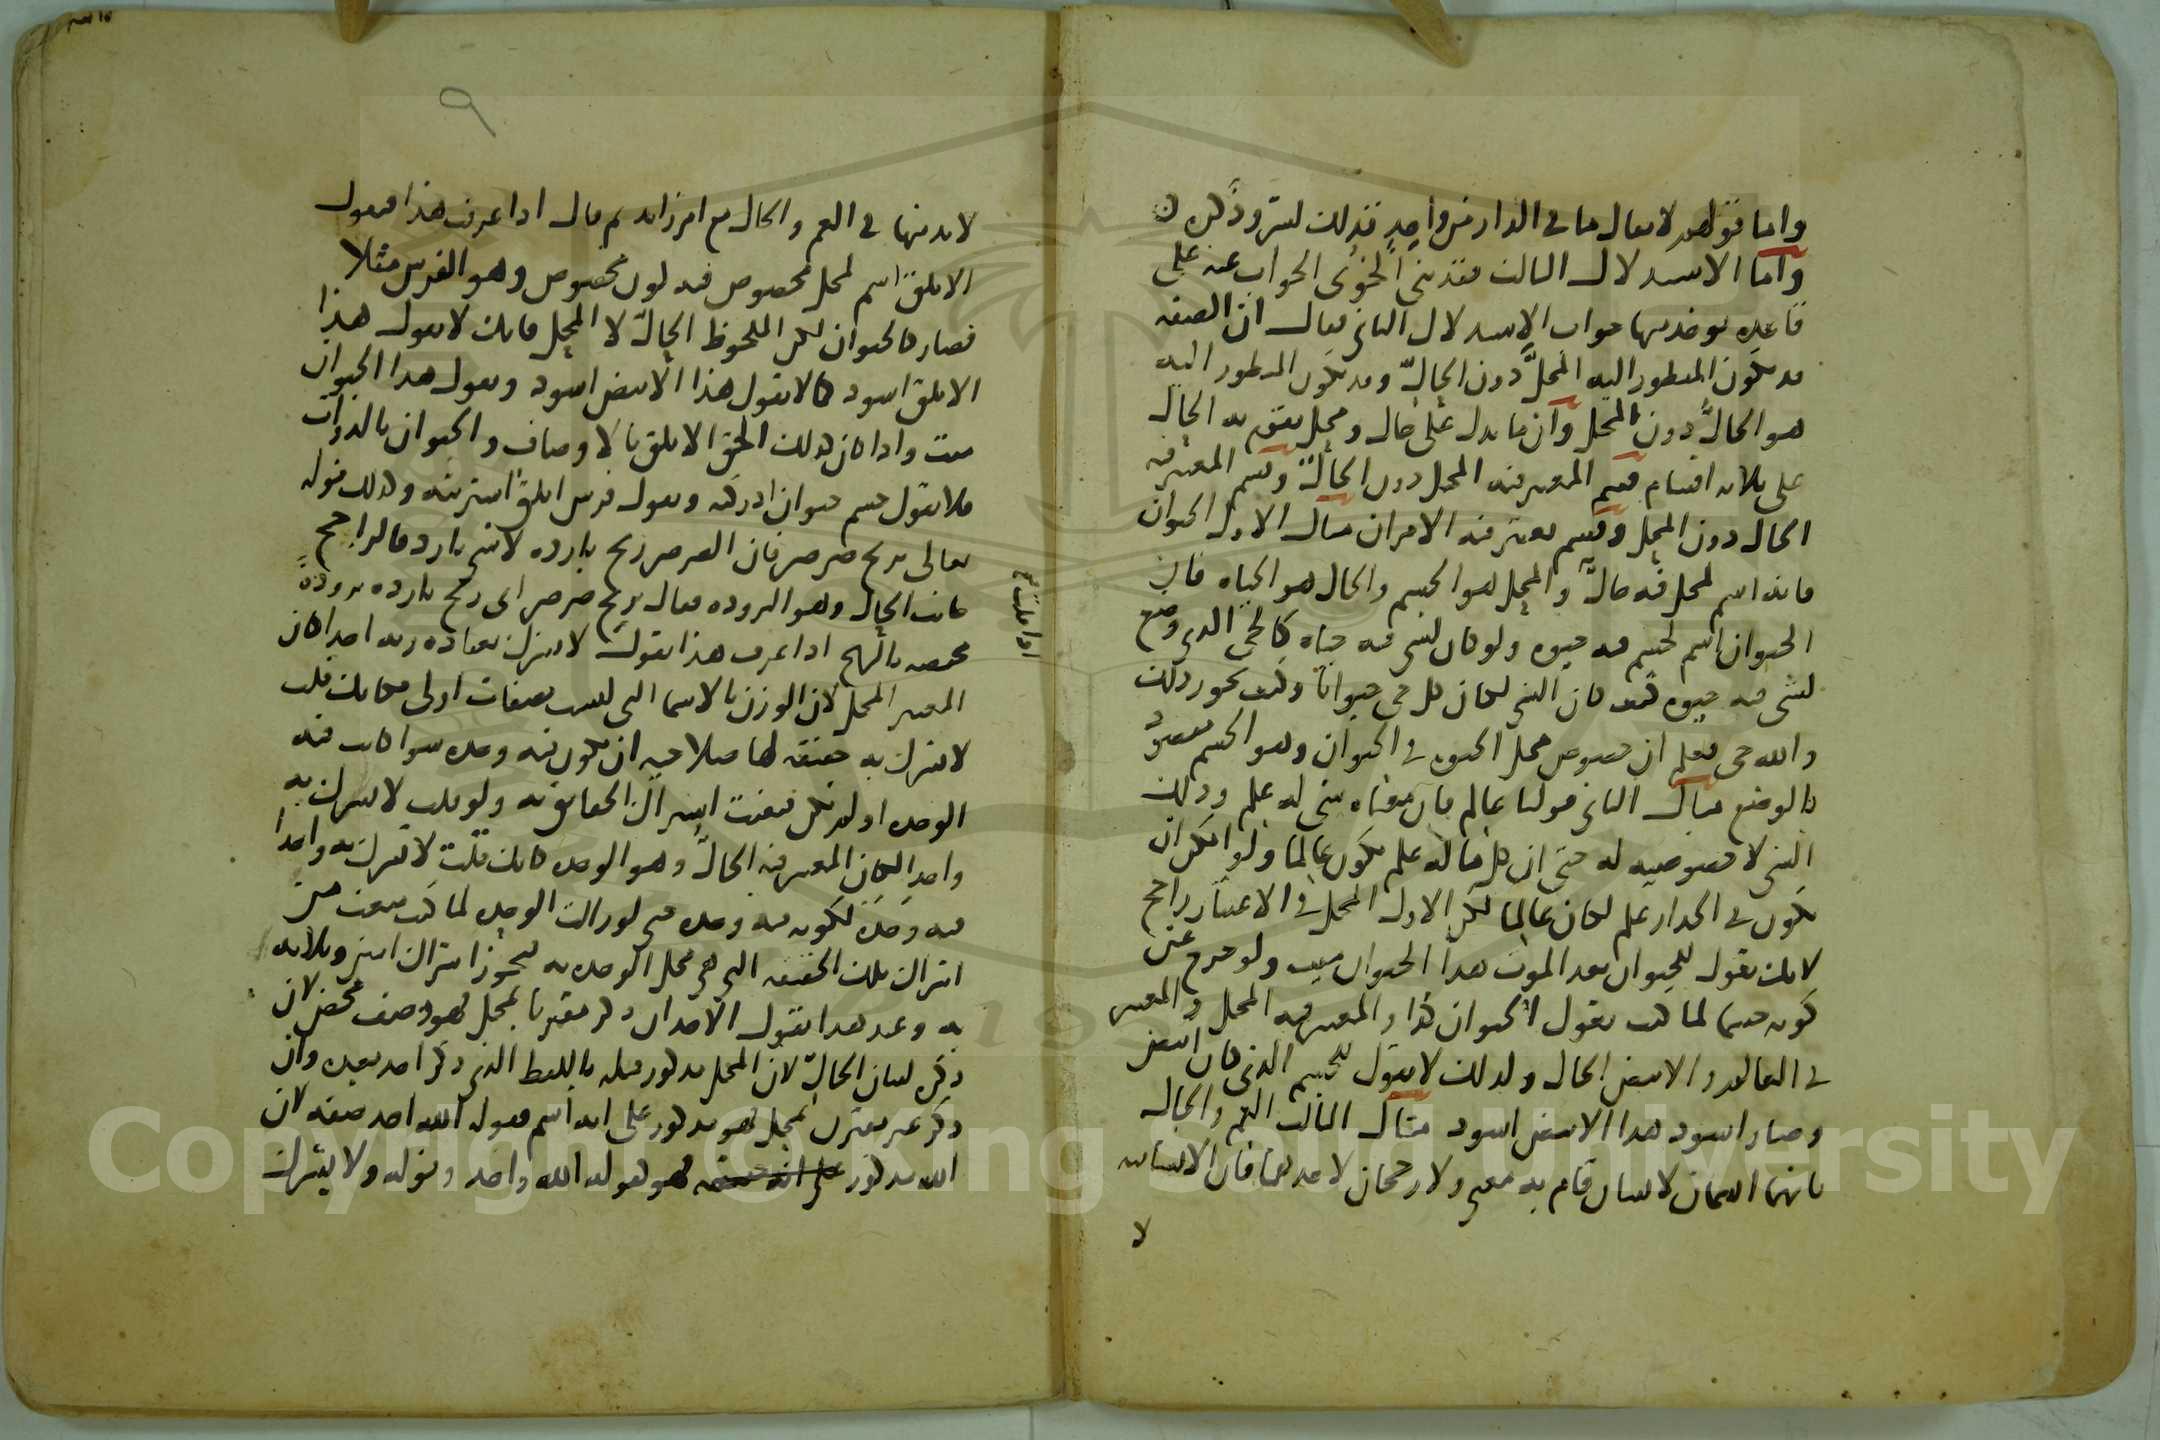 واما قولهم لا يقال ما في الدار من واحد فذلك لسر وذكره
واما الاستدلال الثالث فقد بنى الخوئى الجواب عنه على
قاعدة يوخذ منها جواب الاستدلال الثاني فقال ان الصفة
قد يكون المنظور اليه المحل دون الحال وقد يكون المنظور اليه
هو الحال دون المحل وان ما يدل على حال ومحل يقوم به الحال
على ثلاثة اقسام قسم المعتبر فيه المحل دون الحال وقسم المعتبر فيه
الحال دون المحل وقسم يعتبر فيه الامران مثال الاول الحيوان
فانه اسم لمحل فيه حال والمحل هو الجسم والحال هو الحياه فان
الحيوان اسم لجسم فيه حيوه ولو كان لشى فيه حياه كالحي الذي وضع
لشى فيه حيوه كيف كان الشي لكان كل حي حيوانا وكيف يجوز ذلك
والله حي فعلم ان خصوص محل الحيوه في الحيوان وهو الجسم مقصود
بالوضع مثال الثاني قولنا عالم فان معناه شي له علم وذلك
الشي لا خصوصيه له حتى ان كل ما له علم يكون عالما ولو امكن ان
يكون في الجدار علم لكان عالما لكن الاول المحل في الاعتبار راجح
لانك تقول للحيوان بعد الموت هذا الحيوان ميت ولو خرج عن
كونه جسما لما كنت تقول الحيوان كذا والمعتبر فيه المحل والمعتبر
في العالم والابيض الحال ولذلك لا تقول للجسم الذي كان ابيض
وصار اسود هذا الابيض اسود مثال الثالث العم والخال
فانهما اسمان لانسان قام به معنى ولا رجحان لاحدهما فان الانسان
لا
٩
لا بد منها في العم والخال مع امر زايد ثم قال اذا عرفت هذا فنقول
الابلق اسم لمحل مخصوص فيه لون مخصوص وهو الفرس مثلا
فصار كالحيوان لكن الملحوظ الحال لا المحل فانك لا تقول هذا
الابلق اسود كما لا تقول هذا الابيض اسود وتقول هذا الحيوان
ميت واذا كان كذلك الحق الابلق بالاوصاف والحيوان بالذوات
فلا تقول جسم حيوان ادركته وتقول فرس ابلق اشتريته وكذلك قوله
تعالى بريح صرصر فان الصرصر ريح بارده لا شي بارد فالراجح
جانب الحال وهو البروده فقال بريح صرصر اى ريح بارده بروده
مختصه بالريح اذا عرف هذا فقوله لا يشرك بعباده ربه احدا كان
المعتبر المحل لان الوزن بالاسما التى ليست بصفات اولى فكانك قلت
لا تشرك به حقيقه لها صلاحيه ان تكون فيه وحده سوا كانت فيه
الوحده او لم تكن فنفيت اشراك الحقايق به ولو قلت لا تشرك به
واحدا لكان المعتبر فيه الحال وهو الوحده كانك قلت لا تشرك به واحدا
فيه وحدة لكونه فيه وحده حتى لو زالت الوحده لما كنت منعت من
اشراك تلك الحقيقه التي هي محل الوحده به فيجوز اشراك اثنين وثلاثه
به وعند هذا نقول الاحد ان ذكر مقترنا بمحل فهو وصف محض لان
ذكره لبيان الحال لان المحل مذكور قبله باللفظ الذي ذكر احد بعده وان
ذكر غير مقترن بمحل فهو مذكور على انه اسم فقوله الله احد صفه لان
الله مذكور فهو كقوله الله واحد وقوله ولا يشرك